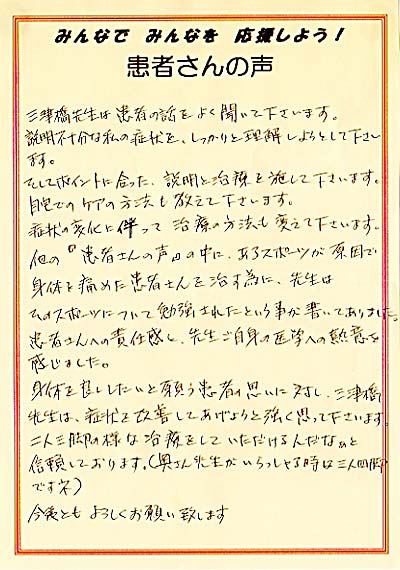 みんなで みんなを 応援しよう！
患者さんの声
三津橋先生は患者の話をよく聞いて下さいます。
説明不十分な私の症状を、しっかりと理解しようとして下さい
ます。
そしてポイントに合った、説明と治療を施して下さいます。
自宅でのケアの方法も教えて下さいます。
症状の変化に伴って 治療の方法も変えて下さいます。
他の『患者さんの声』の中に、あるスポーツが原因で
身体を痛めた患者さんを治す為に、先生は
そのスポーツについて勉強されたという事が書いてありました。
患者さんへの責任感と、先生ご自身の医学への熱意を
感じました。
身体を良くしたいと願う患者の思いに対し、三津橋
先生は、症状を改善してあげようと強く思って下さいます。
二人三脚の様な治療をしていただけるんだなぁと
信頼しております。(奥さん先生がいらっしゃる時は三人四脚
ですネ)
今後とも よろしくお願い致します